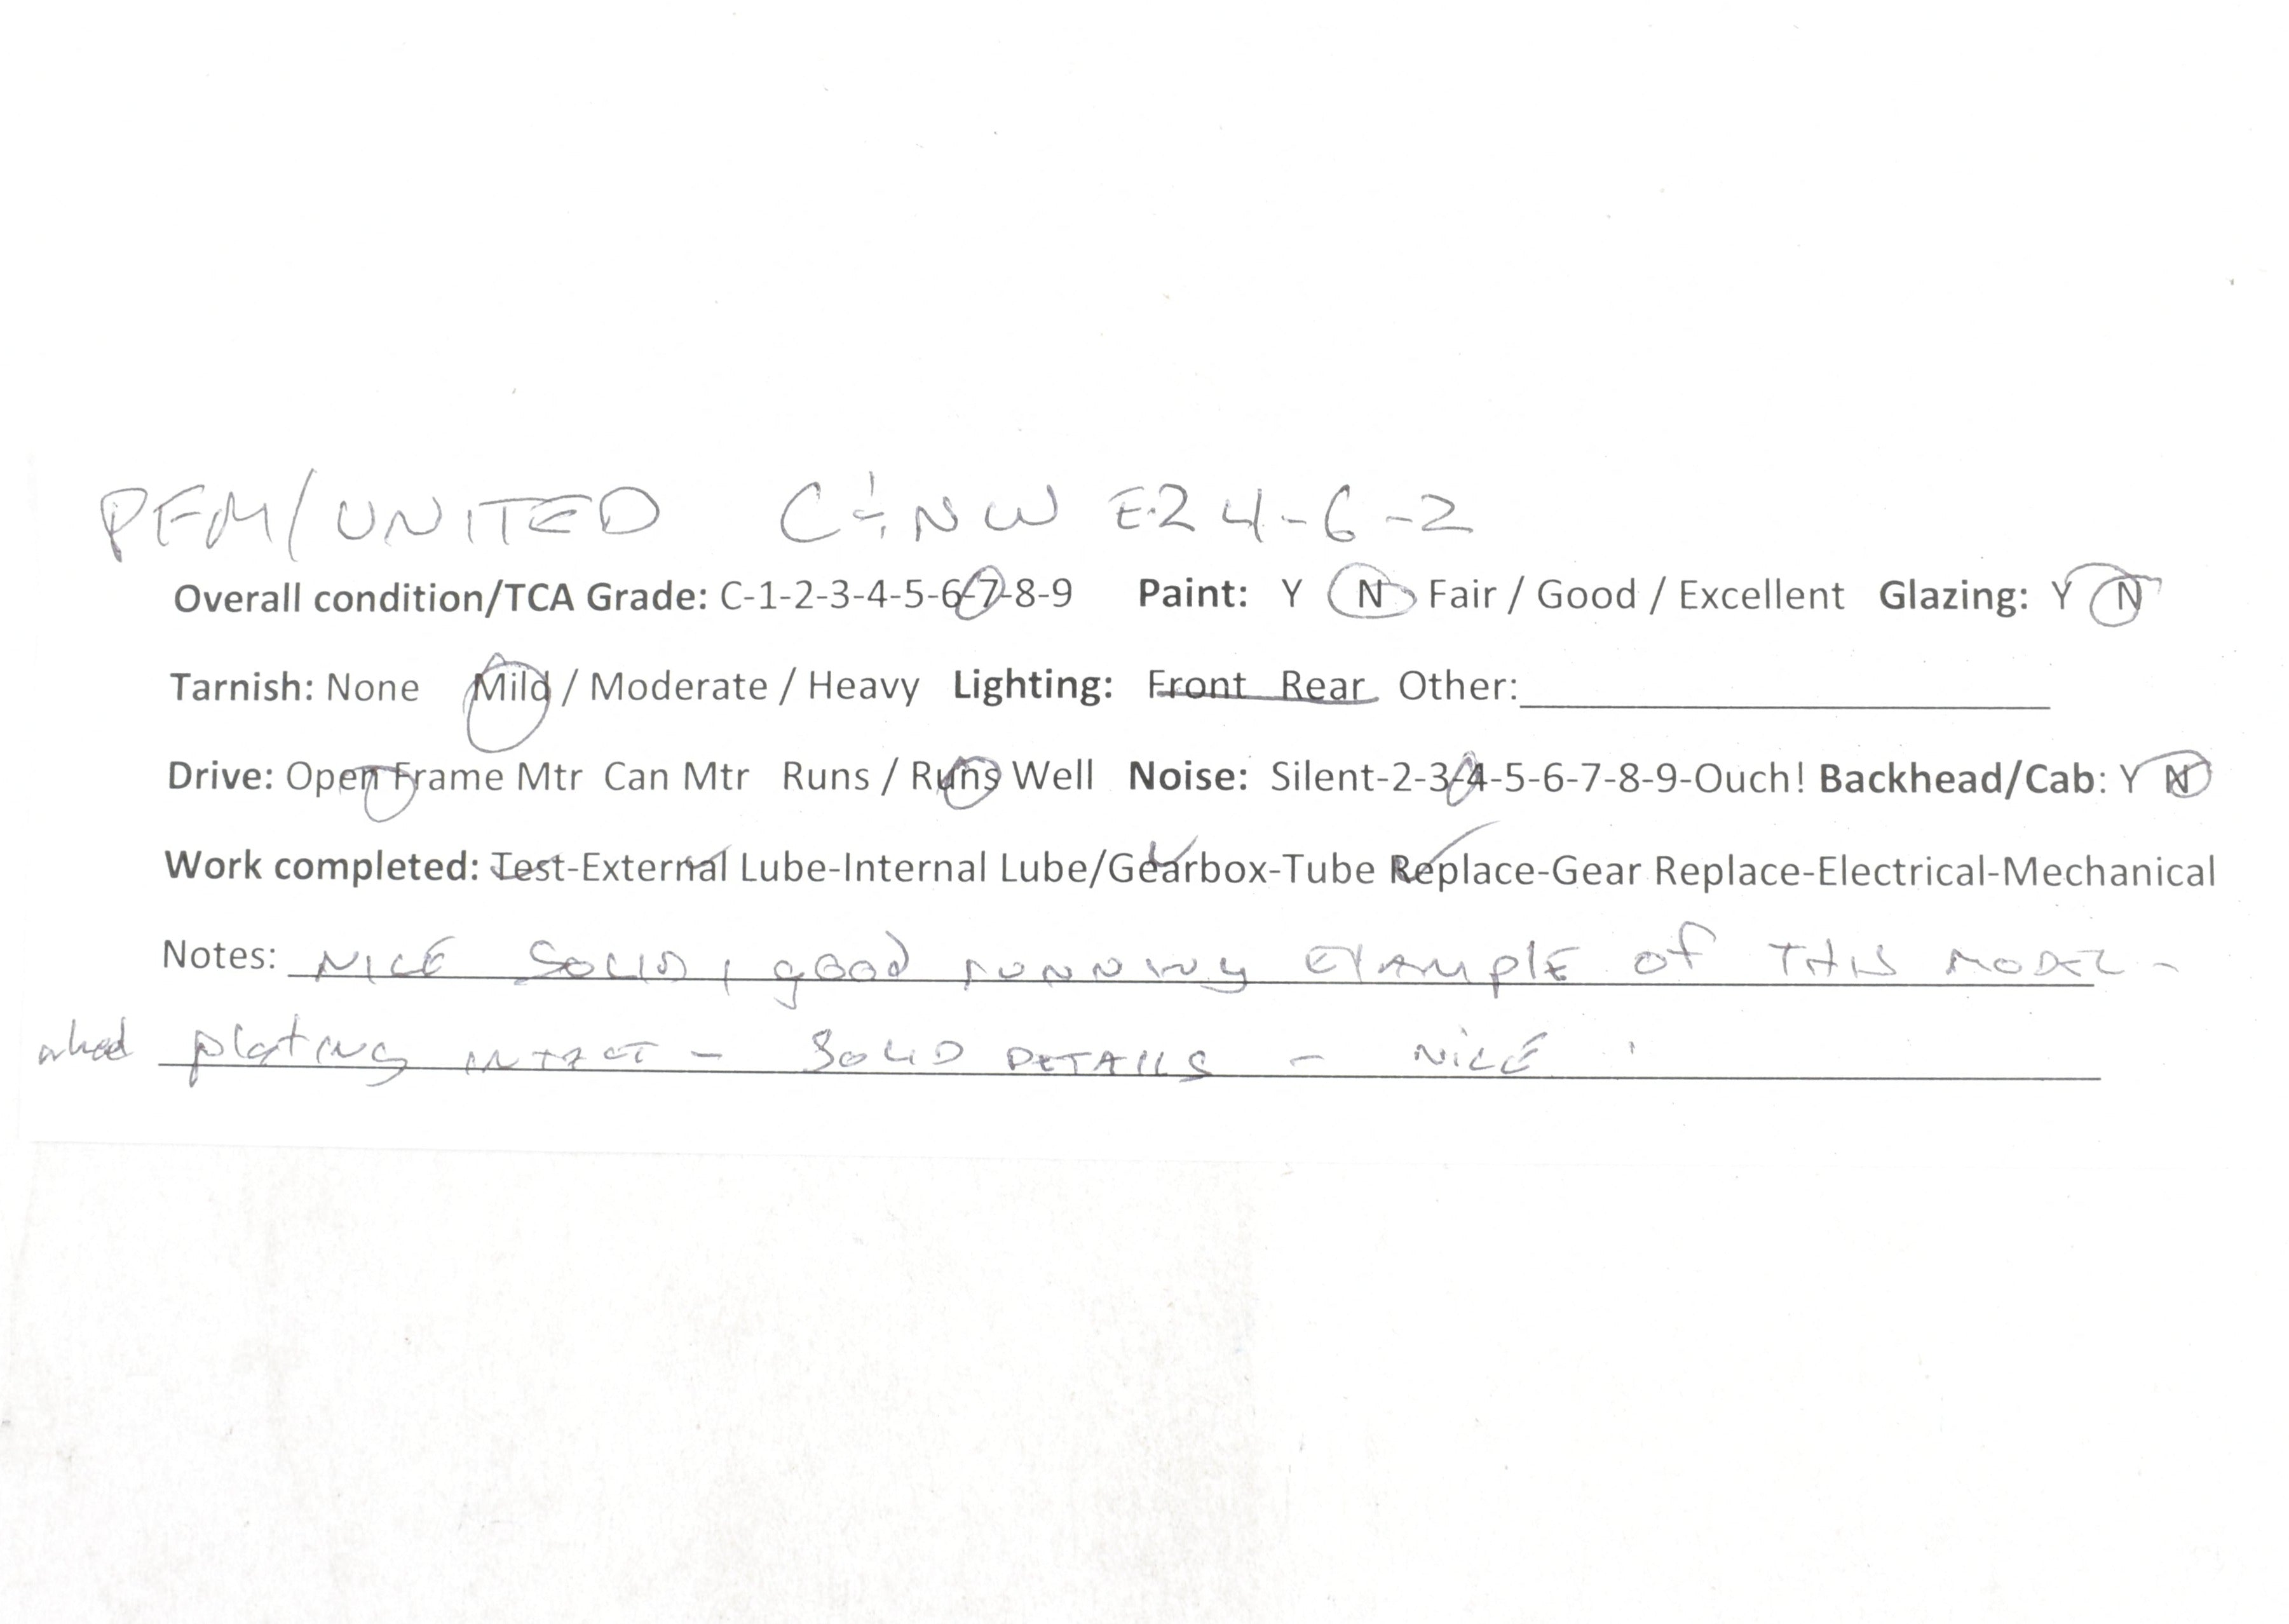 PFM/UNITED C&NW E-2 4-6-2
Overall condition/TCA Grade: C-1-2-3-4-5-6-7-8-9 Paint: Y N Fair / Good / Excellent Glazing: Y N
Tarnish: None Mild / Moderate / Heavy Lighting: Front Rear Other:
Drive: Open Frame Mtr Can Mtr Runs / Runs Well Noise: Silent-2-3-4-5-6-7-8-9-Ouch! Backhead/Cab: Y N
Work completed: Test-External Lube-Internal Lube/Gearbox-Tube Replace-Gear Replace-Electrical-Mechanical
Notes: NICE SOLID, good running EXAMPLE of THIS MODEL -
wheel plating INTACT - SOLID DETAILS - NICE !